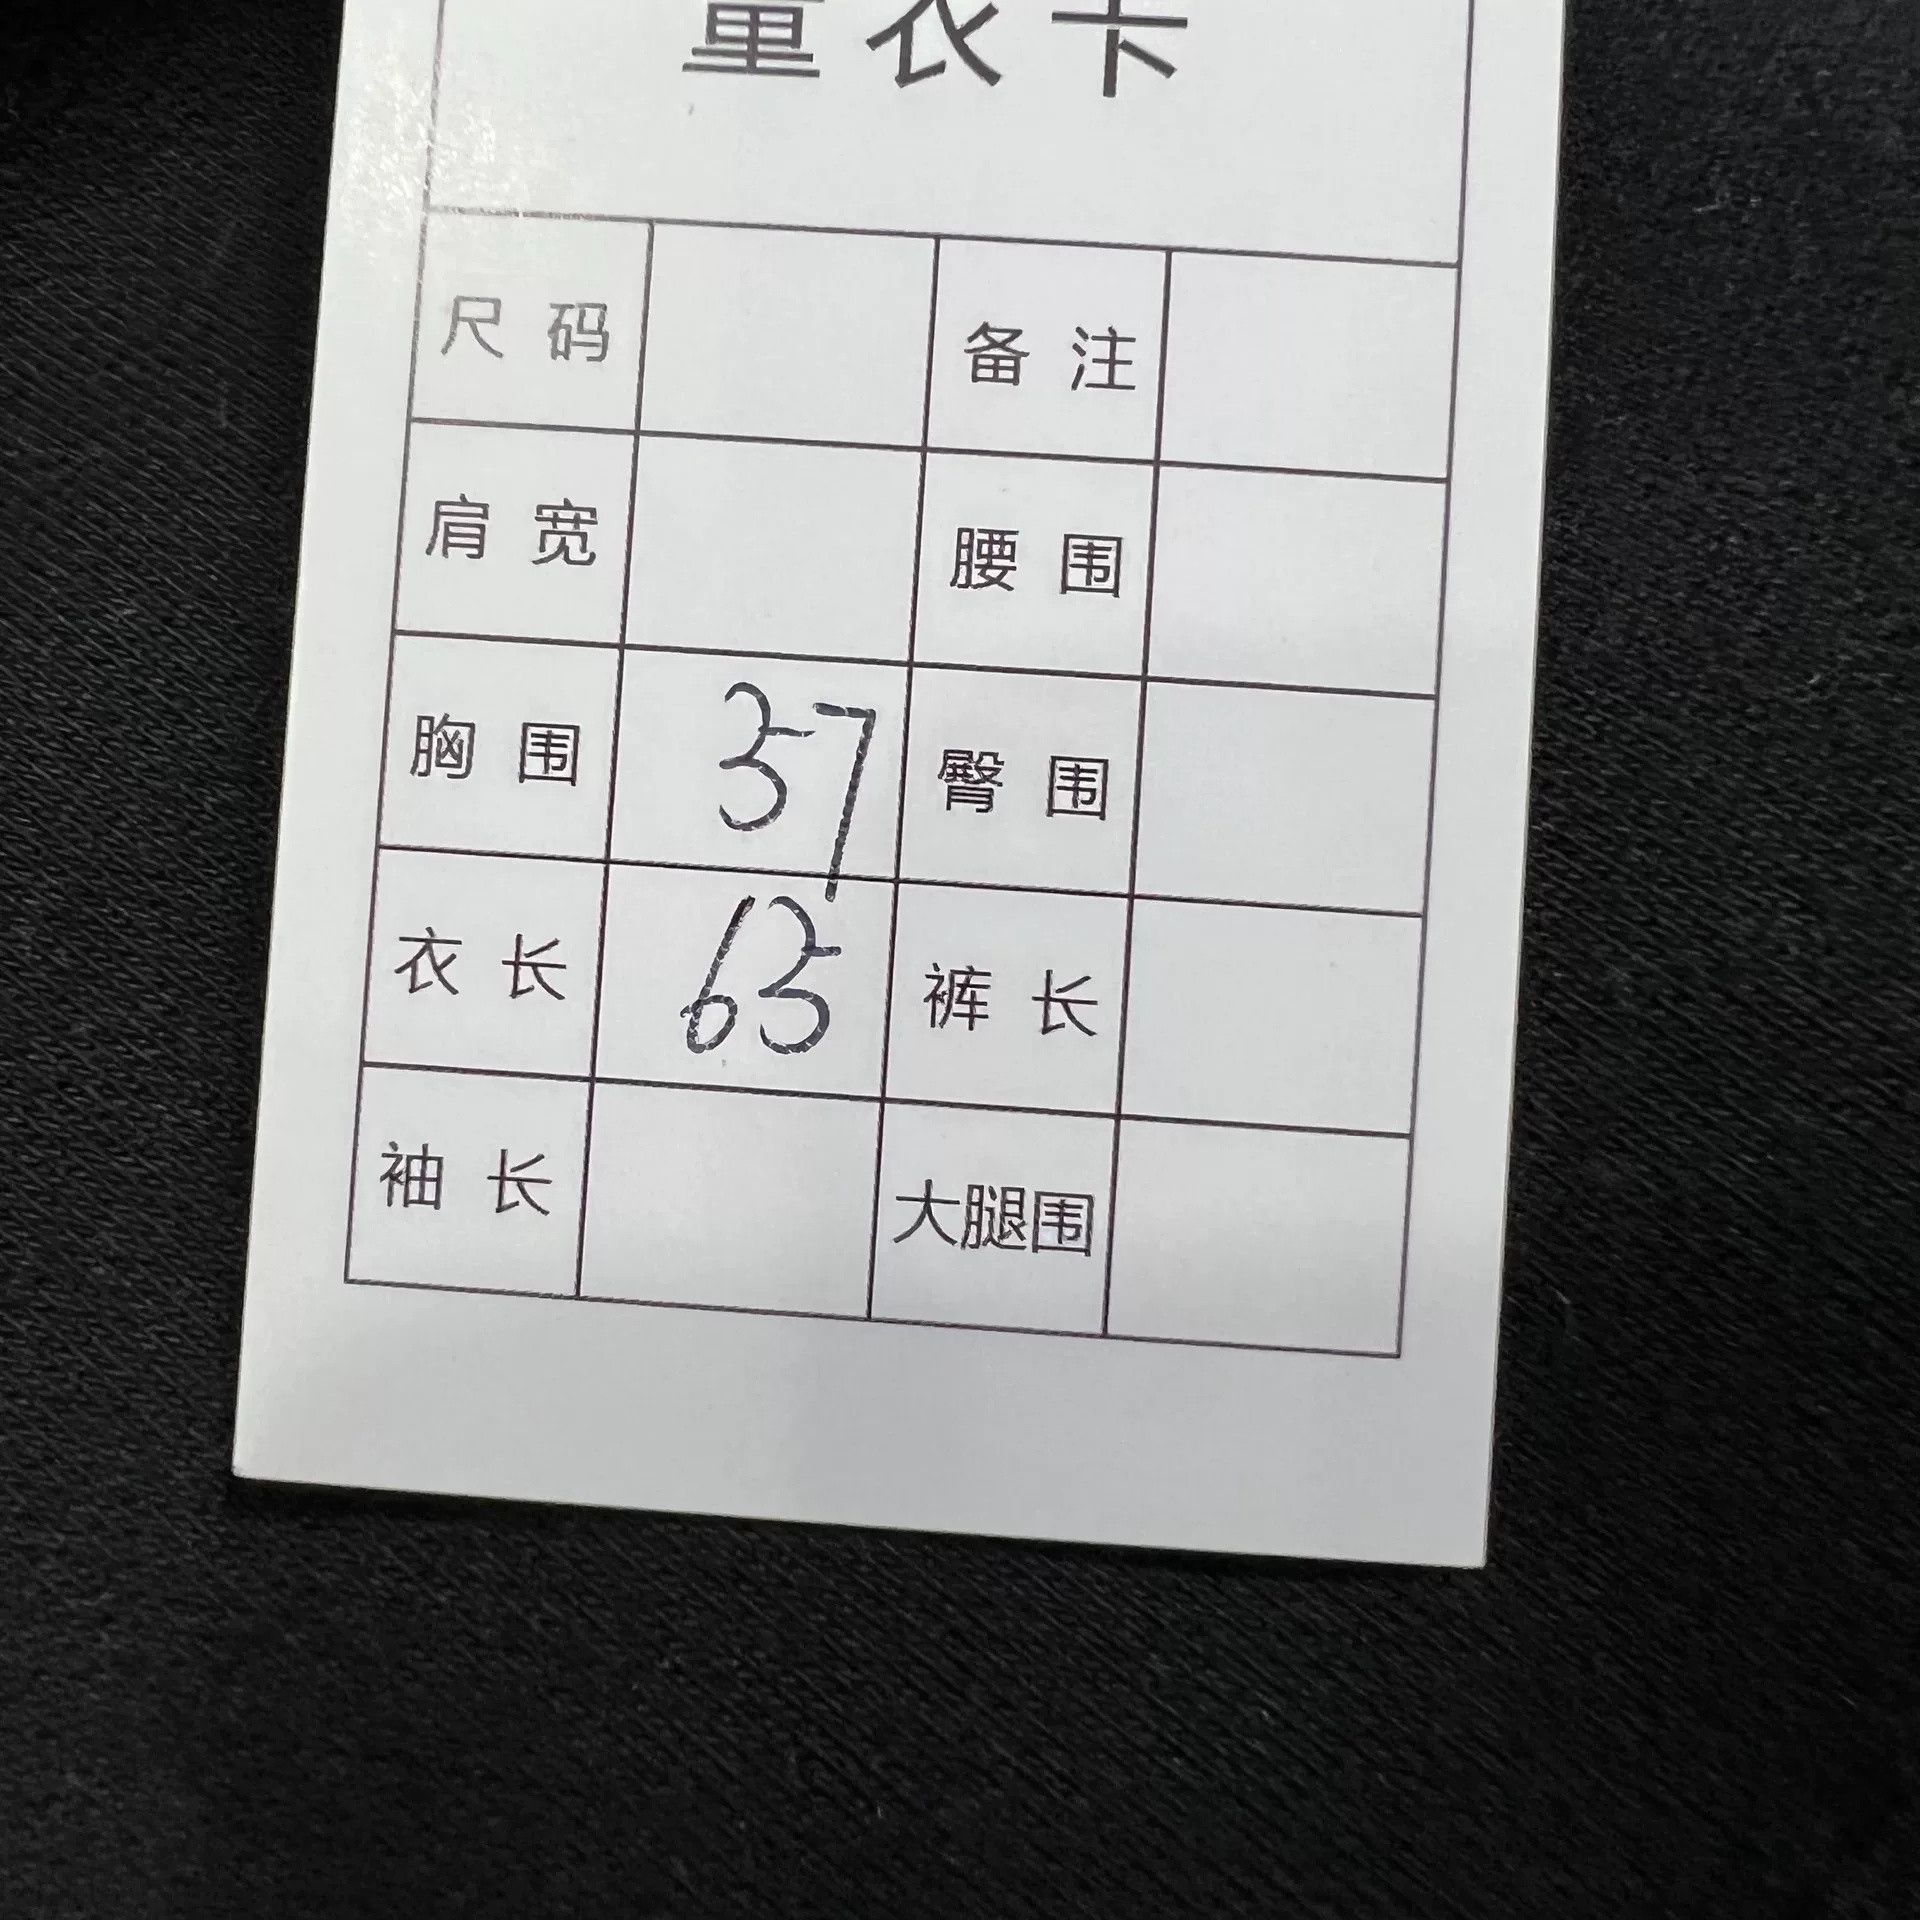 量衣卡
尺码 备注
肩宽 腰围
胸围 57 臀围
衣长 65 裤长
袖长 大腿围